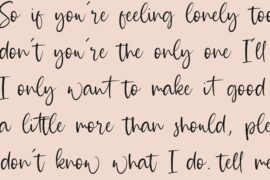 So if you're feeling lonely too
don't you're the only one I'll
I only want to make it good
a little more than should, ple
don't know what I do. tell me